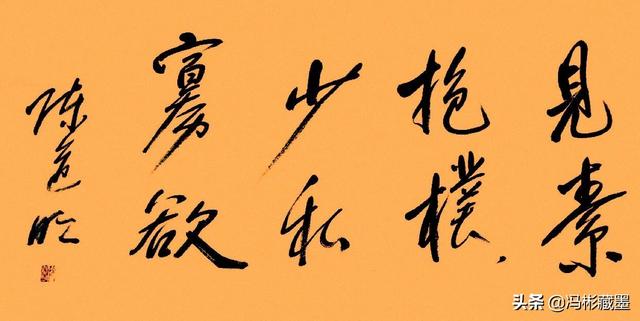 見素
抱樸
少私
寡欲
陈道明
头条 @冯彬藏墨